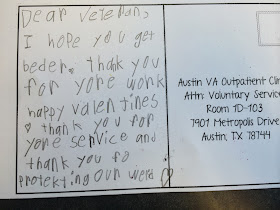 Dear Veteran,
I hope you get
beder. thank you
for yore work
happy valentines
♡ thank you for
yore service and
thank you fo
protekting our werld ♡
Austin VA Outpatient Clin
Attn: Voluntary Service
Room 1D-103
7901 Metropolis Drive
Austin, TX 78744